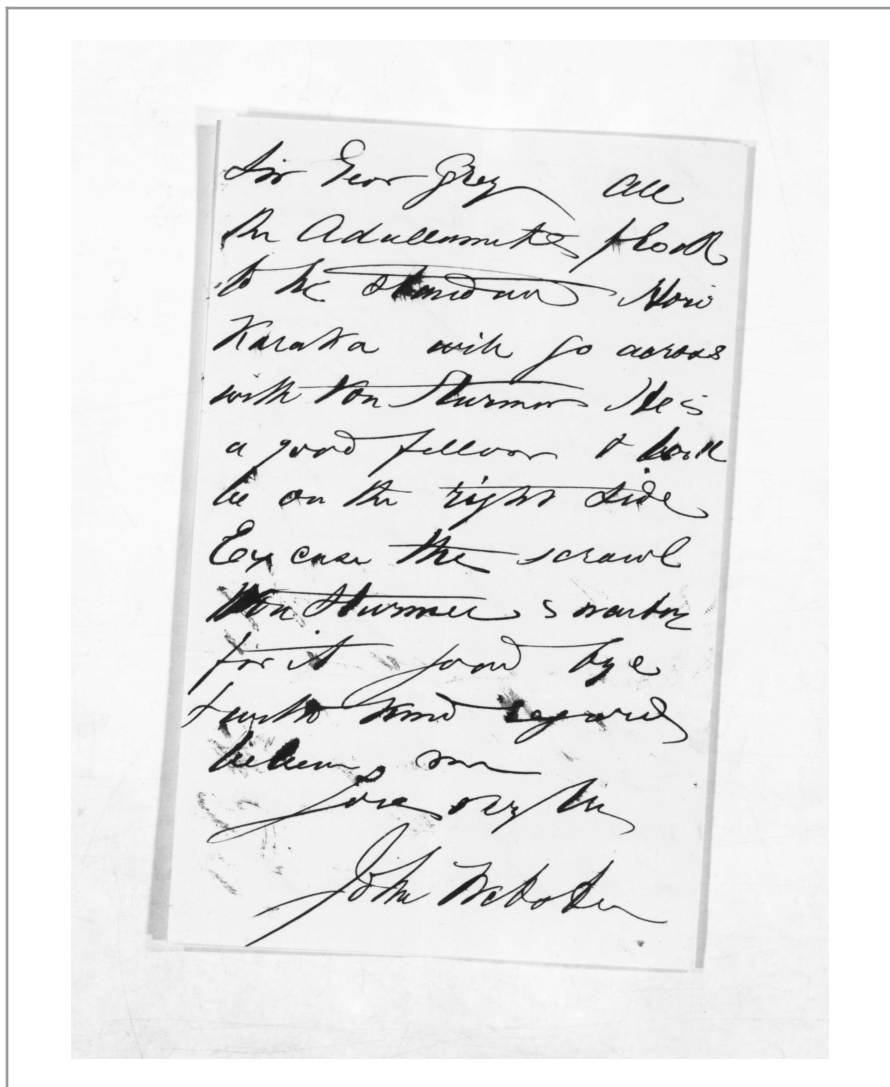 Sir Geor Grey All
the Adullamites flock
to the standard Hori
Karaka will go across
with Von Sturmer He is
a good fellow & will
be on the right side
Excuse the scrawl
Von Sturmer is waiting
for it good bye
& with kind regards
believe me
Yours very truly
John Webster